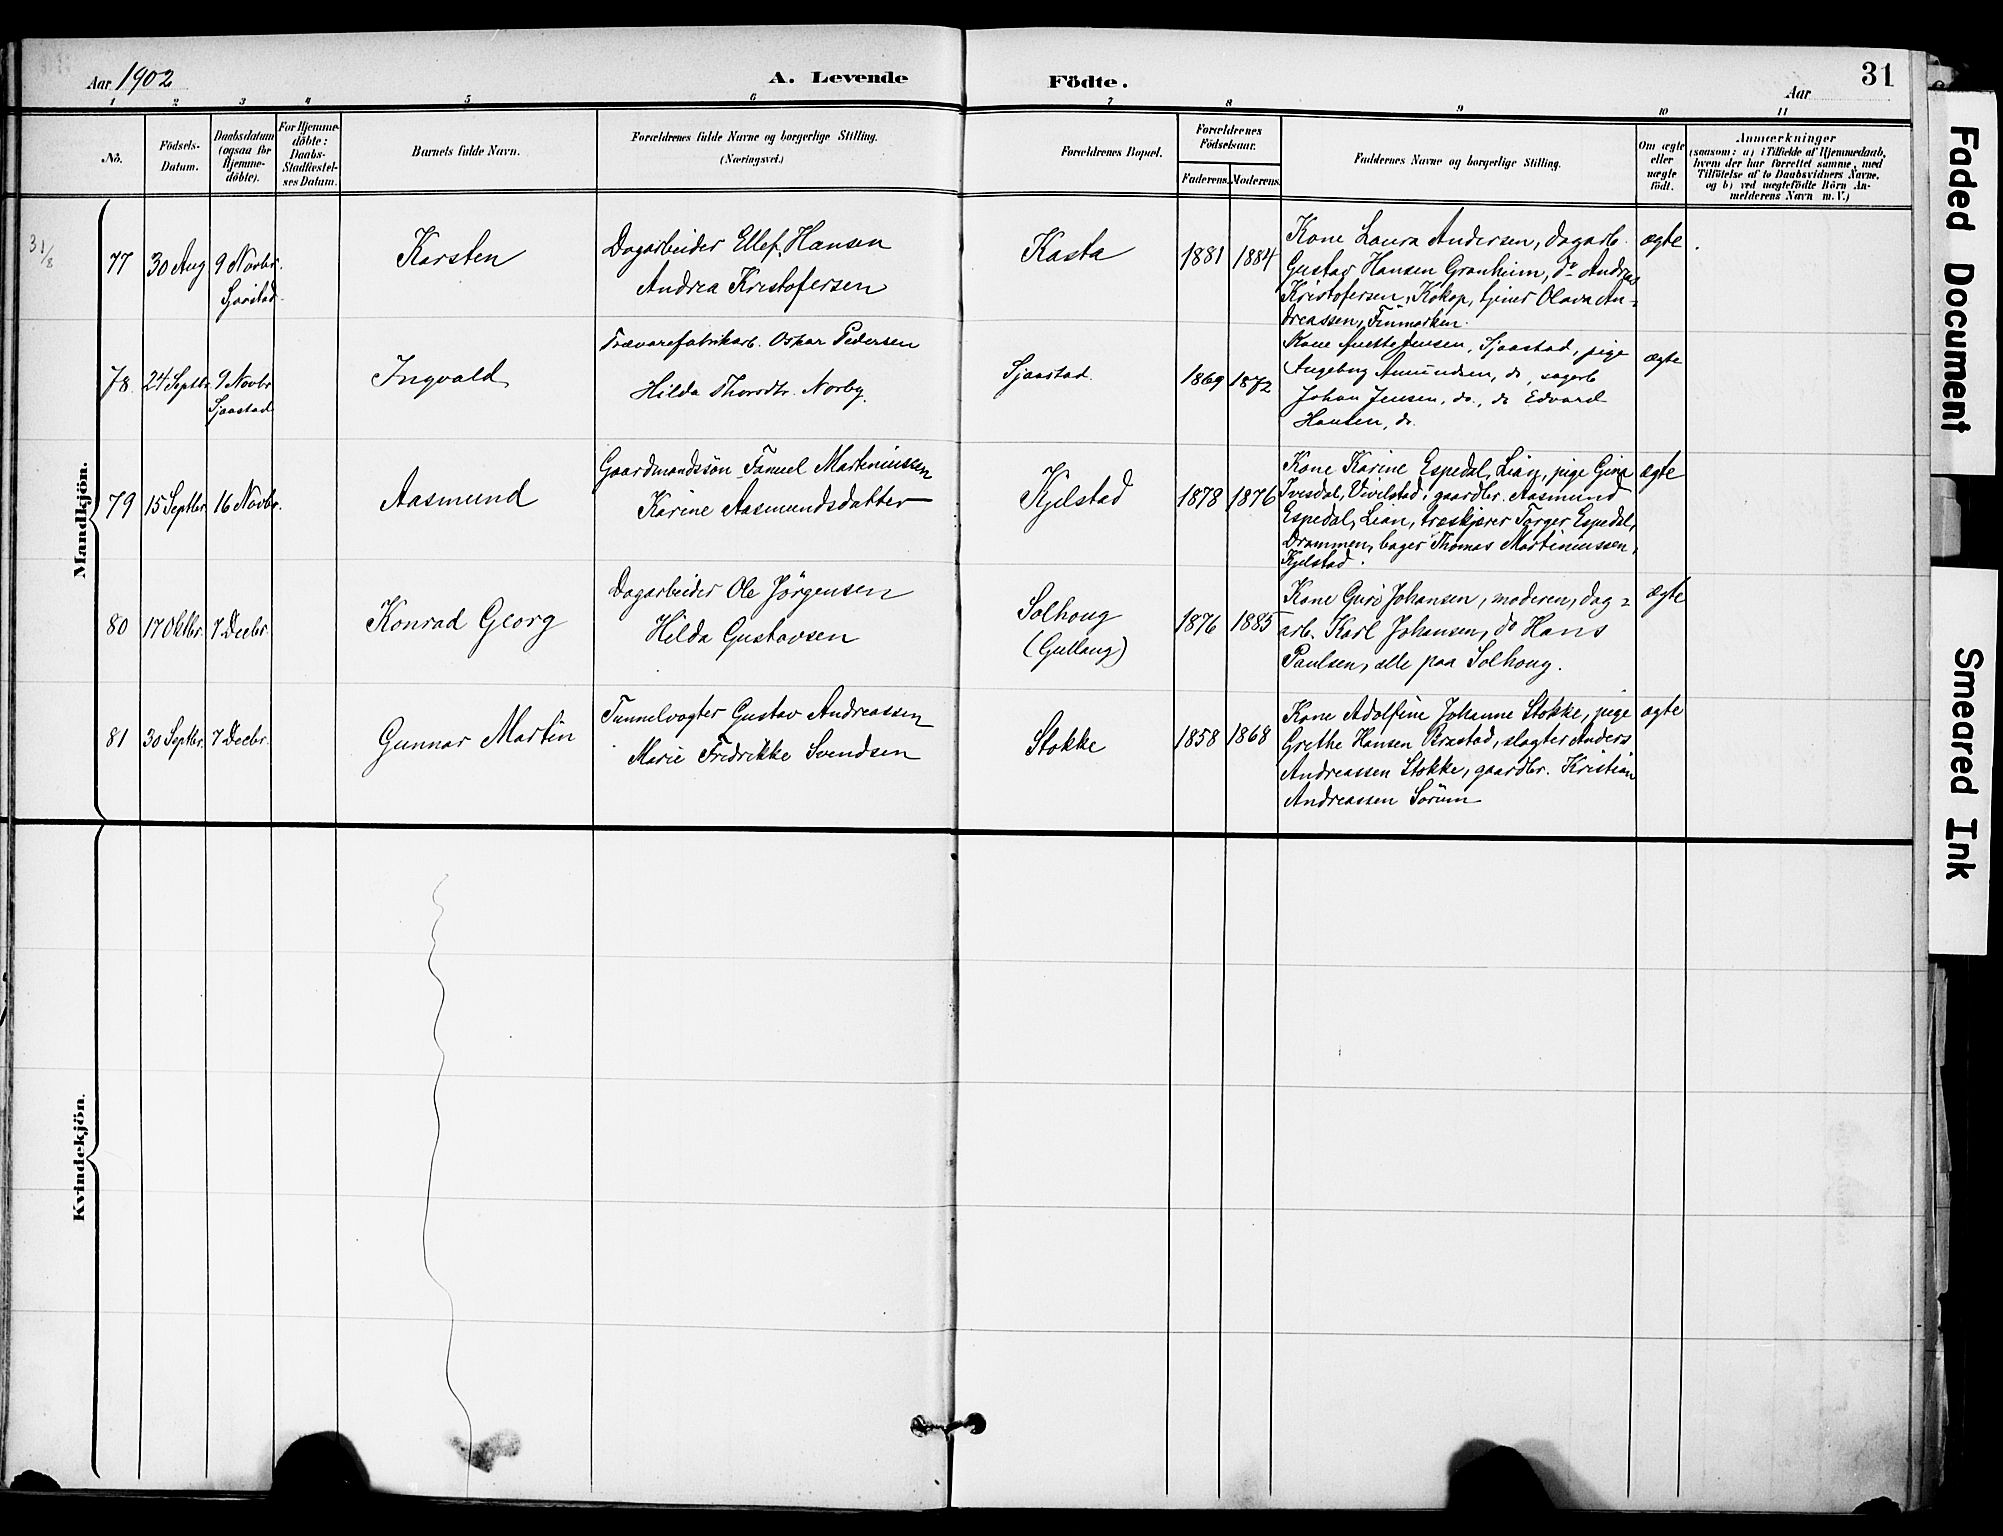 Aar 1902
A. Levende Födte.
Aar
31
1 2 3 4 5 6 7 8 9 10 11
No.
Födsels-
Datum.
Daabsdatum
(ogsaa for
Hjemme-
döbte).
For Hjemme-
döbte:
Daabs-
Stadfæstel-
ses Datum.
Barnets fulde Navn.
Forældrenes fulde Navne og borgerlige Stilling.
(Næringsvei.)
Forældrenes Bopæl.
Forældrenes
Födselsaar.
Faderens. Moderens.
Faddernes Navne og borgerlige Stilling.
Om ægte
eller
uægte
födt.
Anmærkninger
(saasom: a) i Tilfælde af Hjemmedaab,
hvem der har forrettet samme, med
Tilföielse af to Daabsvidners Navne,
og b) ved uægtefödte Börn An-
melderens Navn m. V.)
Mandkjön.
31/8
77
30 Aug
9 Novbr.
Sjaastad.
Karsten
Dagarbeider Ellef Hansen
Andrea Kristofersen
Kasta
1881
1884
Kone Laura Andersen, dagarb.
Gustav Hansen Granheim, do Andreas
Kristofersen, Kokop, tjener Olava An-
dreassen, Finmarken.
ægte
78.
24 Septbr.
9 Novbr
Sjaastad
Ingvald
Trævarefabrikarb. Oskar Pedersen
Hilda Thorsdtr. Norby.
Sjaastad.
1869
1872
Kone Anette Jensen, Sjaastad, pige
Ingeborg Amundsen, do, sagarb
Johan Jensen, do., do Edvard
Hansen, do.
ægte
79
15 Septbr.
16 Novbr.
Aasmund
Gaardmandssön Fanuel Martiniussen
Karine Aasmundsdatter
Kjelstad
1878
1876
Kone Karine Espedal, Lian, pige Gina
Ivesdal, Vivelstad, gaardbr. Aasmund
Espedal, Lian, træskjærer Torger Espedal,
Drammen, bager Thomas Martiniussen,
Kjelstad.
ægte
80
17 Oktbr.
7 Decbr.
Konrad Georg
Dagarbeider Ole Jörgensen
Hilda Gustavsen
Solhoug
(Gullaug)
1876
1885
Kone Guri Johansen, moderen, dag-
arb. Karl Johansen, do Hans
Paulsen, alle paa Solhoug.
ægte
81
30 Septbr.
7 Decbr.
Gunnar Martin
Tunnelvogter Gustav Andreassen
Marie Fredrikke Svendsen
Stokke
1858
1868
Kone Adolfine Johanne Stokke, pige
Grethe Hansen Præstad, slagter Anders
Andreassen Stokke, gaardbr. Kristian
Andreassen Sörum
ægte
Kvindekjön.
Faded Document
Smeared Ink